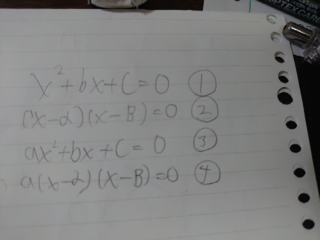 x²+bx+c=0 ①
(x-α)(x-β)=0 ②
ax²+bx+c=0 ③
a(x-α)(x-β)=0 ④